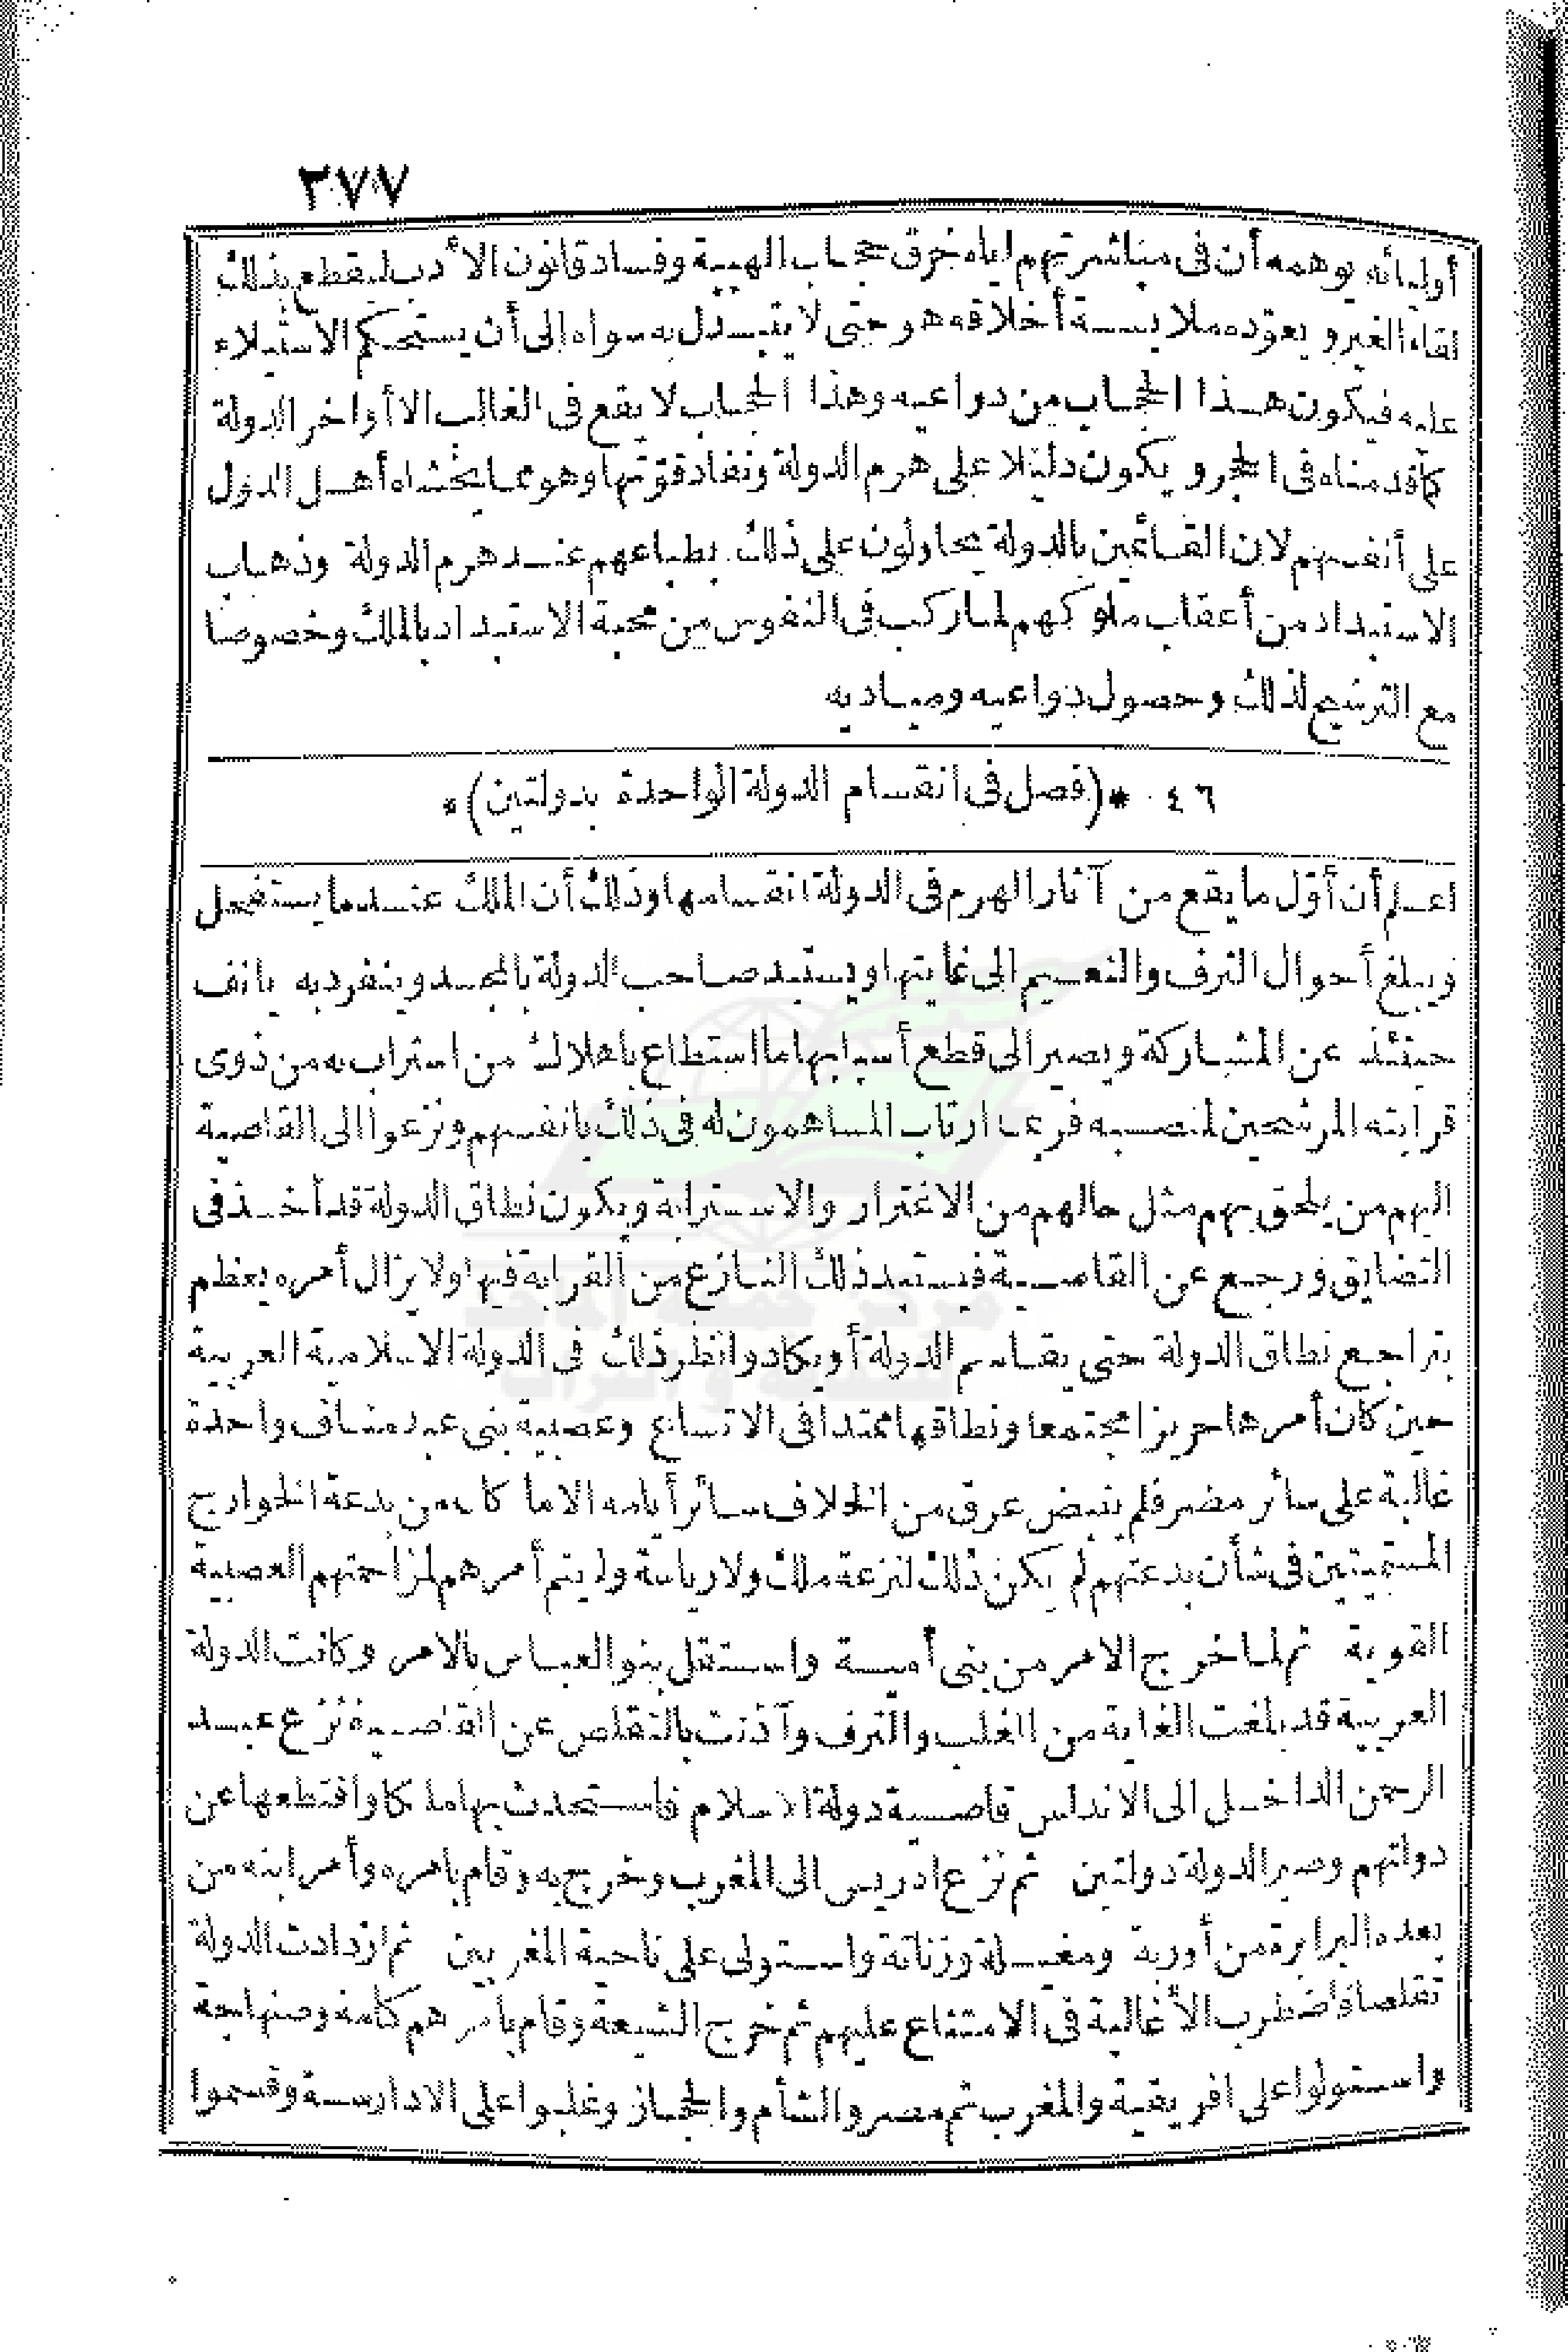 ٢٧٧
أوليائه يوهمه أن فى مباشرتهم اياه خرق حجاب الهيبة وفساد قانون الأدب ليقطع بذلك
لقاء الغير ويعوّده ملابسة أخلاقه هو حتى لا يتبدل به سواه الى أن يستحكم الاستيلاء
عليه فيكون هذا الحجاب من دواعيه وهذا الحجاب لا يقع فى الغالب الا أواخر الدولة
كما قدمناه فى الحجر ويكون دليلا على هرم الدولة ونفاد قوّتها وهو مما يخشاه أهل الدول
على أنفسهم لان القائمين بالدولة يحاولون على ذلك بطباعهم عند هرم الدولة وذهاب
الاستبداد من أعقاب ملوكهم لما ركب فى النفوس من محبة الاستبداد بالملك وخصوصا
مع الترشيح لذلك وحصول دواعيه ومباديه
٤٦ * (فصل فى انقسام الدولة الواحدة بدولتين) *
اعلم أن أوّل ما يقع من آثار الهرم فى الدولة انقسامها وذلك أن الملك عندما يستفحل
ويبلغ أحوال الترف والنعيم الى غايتها ويستبد صاحب الدولة بالمجد وينفرد به يانف
حينئذ عن المشاركة ويصير الى قطع أسبابها ما استطاع باهلاك من استراب به من ذوى
قرابته المرشحين لمنصبه فربما ارتاب المساهمون له فى ذلك بانفسهم ونزعوا الى القاصية
اليهم من يلحق بهم مثل حالهم من الاغترار والاسترابة ويكون نطاق الدولة قد أخذ فى
التضايق ورجع عن القاصية فيستبد ذلك النازع من القرابة فيها ولا يزال أمره يعظم
بتراجع نطاق الدولة حتى يقاسم الدولة أو يكاد وانظر ذلك فى الدولة الاسلامية العربية
حين كان أمرها حريزا مجتمعا ونطاقها ممتدا فى الاتساع وعصبية بنى عبد مناف واحدة
غالبة على سائر مضر فلم ينبض عرق من الخلاف سائر أيامه الا ما كان من بدعة الخوارج
المستميتين فى شأن بدعتهم لم يكن ذلك لنزعة ملك ولا رياسة ولم يتم أمرهم لمزاحمتهم العصبية
القوية ثم لما خرج الامر من بنى أمية واستقل بنو العباس بالامر وكانت الدولة
العربية قد بلغت الغاية من الغلب والترف وآذنت بالتقلص عن القاصية نزع عبد
الرحمن الداخل الى الاندلس قاصية دولة الاسلام فاستحدث بها ملكا واقتطعها عن
دولتهم وصير الدولة دولتين ثم نزع ادريس الى المغرب وخرج به وقام بامره وأمر ابنه من
بعده البرابرة من أوربة ومغيلة وزناتة واستولى على ناحية المغربين ثم ازدادت الدولة
تقلصا فاضطرب الأغالبة فى الامتناع عليهم ثم خرج الشيعة وقام بأمرهم كتامة وصنهاجة
واستولوا على افريقية والمغرب ثم مصر والشأم والحجاز وغلبوا على الادارسة وقسموا
مركز جمعة الماجد
للثقافة و التراث